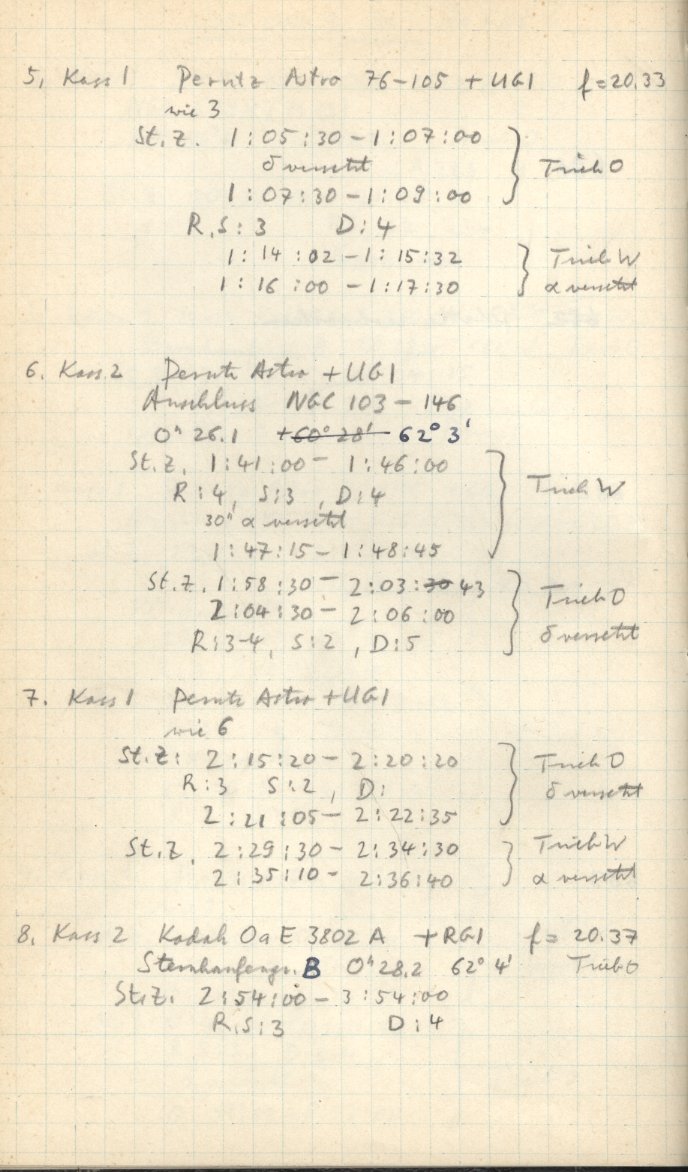 5, Kass 1 Perutz Astro 76-105 + UG1 f=20,33
wie 3
St.z. 1:05:30 - 1:07:00
δ versetzt Trieb O
1:07:30 - 1:09:00
R,S:3 D:4
1:14:02 - 1:15:32 Trieb W
1:16:00 - 1:17:30 α versetzt
6. Kass. 2 Perutz Astro + UG1
Anschluss NGC 103 - 146
0ʰ 26.1 +60° 28' 62° 3'
St.z, 1:41:00 - 1:46:00
R:4, S:3, D:4 Trieb W
30" α versetzt
1:47:15 - 1:48:45
St.z. 1:58:30 - 2:03:30 43 Trieb O
2:04:30 - 2:06:00
R:3-4, S:2, D:5 δ versetzt
7. Kass 1 Perutz Astro + UG1
wie 6
St.z: 2:15:20 - 2:20:20 Trieb O
R:3 S:2, D: δ versetzt
2:21:05 - 2:22:35
St.z, 2:29:30 - 2:34:30 Trieb W
2:35:10 - 2:36:40 α versetzt
8, Kass 2 Kodak OaE 3802 A + RG1 f= 20.37
Sternhaufengr. B 0ʰ 28,2 62° 4' Trieb O
St.z. 2:54:00 - 3:54:00
R,S:3 D:4